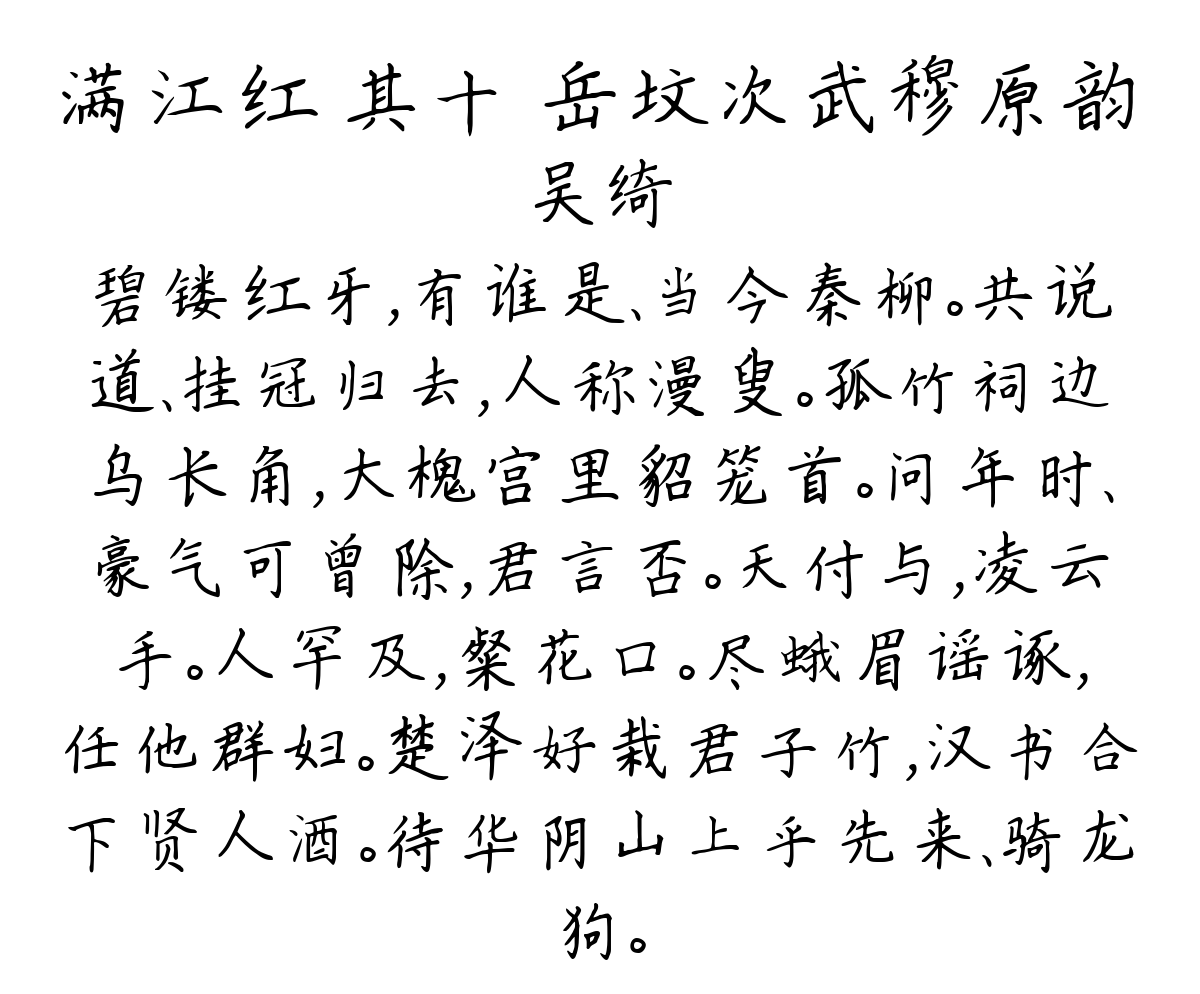 满江红 其十 岳坟次武穆原韵
吴绮
碧镂红牙,有谁是、当今秦柳。共说
道、挂冠归去,人称漫叟。孤竹祠边
乌长角,大槐宫里貂笼首。问年时、
豪气可曾除,君言否。天付与,凌云
手。人罕及,粲花口。尽蛾眉谣诼,
任他群妇。楚泽好栽君子竹,汉书合
下贤人酒。待华阴山上乎先来、骑龙
狗。